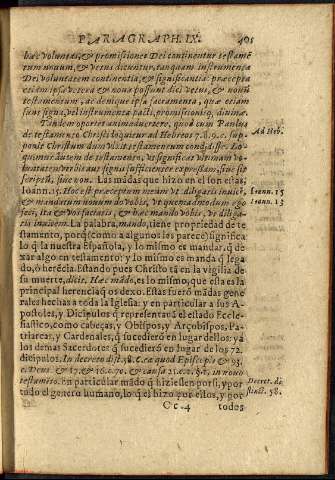 PARAGRAPH. IX. 405
hæc voluntas, & promissiones Dei continentur testamē
torum nouum, & vetus dicuntur, tanquam instrumenta
Dei voluntatem continentia, & significantia: præcepta
etiam ipsa vetera & noua possunt dici vetus, & nouū
testamentum, ac denique ipsa sacramenta, quæ etiam
sunt signa, vel instrumenta pacti, promissionisq; diuinæ.
Tandem oportet animaduertere, quod cum Paulus
de testamento Christi loquitur ad Hebreos 7.8.9. & sup-
ponit Christum dum vixit testamentum condidisse. Lo-
quimur autem de testamento, vt significat vltimam vo-
luntatem verbis aut signis sufficienter expressam, siue sit
scripta, siue non. Las mādas que hizo en el son estas,
Ioann. 15. Hoc est præceptum meum vt diligatis inuicē,
& mandatum nouum do vobis, vt quemadmodum ego
feci, ita & vos faciatis, & hæc mando vobis, vt diliga-
tis inuicem. La palabra, mando, tiene propriedad de te
stamento (como ya a algunos les parece) significa
lo q̄ la nuestra Española, y lo mismo es mandar, q̄ de
xar algo en testamento: y lo mismo es manda q̄ lega
do, ò herēcia. Estando pues Christo tā en la vigilia de
su muerte, dicit. Hæc mādo, es lo mismo, que esta es la
principal herencia q̄ os dexo. Estas fuerō mādas gene
rales hechas a toda la Iglesia: y en particular a sus A-
postoles, y Dicipulos q̄ representauā el estado Eccle-
siastico, como cabeças, y Obispos, y Arçobispos, Pa-
triarcas, y Cardenales, q̄ sucedierō en lugar dellos: y a
los demas Sacerdotes q̄ sucedierō en lugar de los 72.
dicipulos. In decreto dist. 58. C. ex quod Episcopis & 93.
c. Deus. & 17. & 16. c. 70. & causa 21. c. 2. §. 1. in nouo
testamēto. en particular mādo q̄ hiziessen por si, y por
todo el genero humano, lo q̄ el hizo por ellos, y por
Cc 4 todos
Ad Heb.
Ioann. 15
Ioann. 13
Decret. di
stinct. 58.